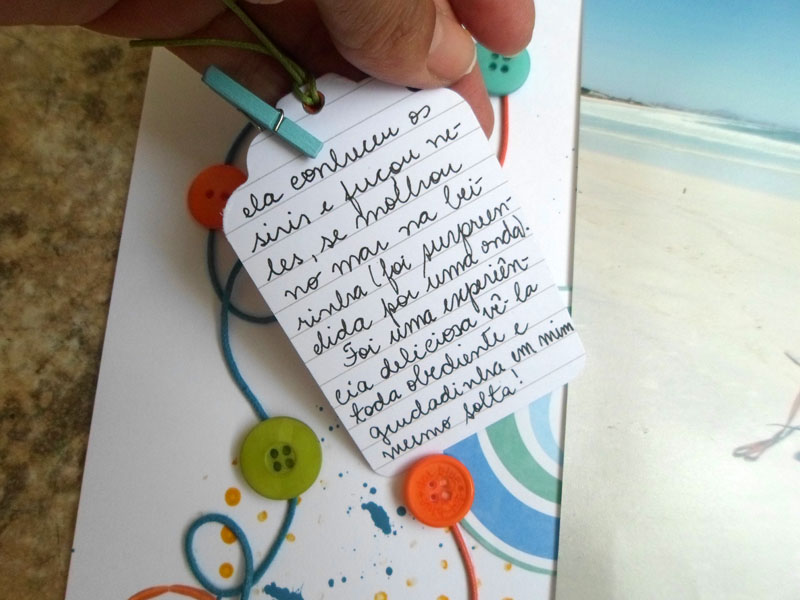 ela conheceu os
siris e fuçou ne-
les, se molhou
no mar na bei-
rinha (foi surpreen-
dida por uma onda).
Foi uma experiên-
cia deliciosa vê-la
toda obediente e
grudadinha em mim
mesmo solta!